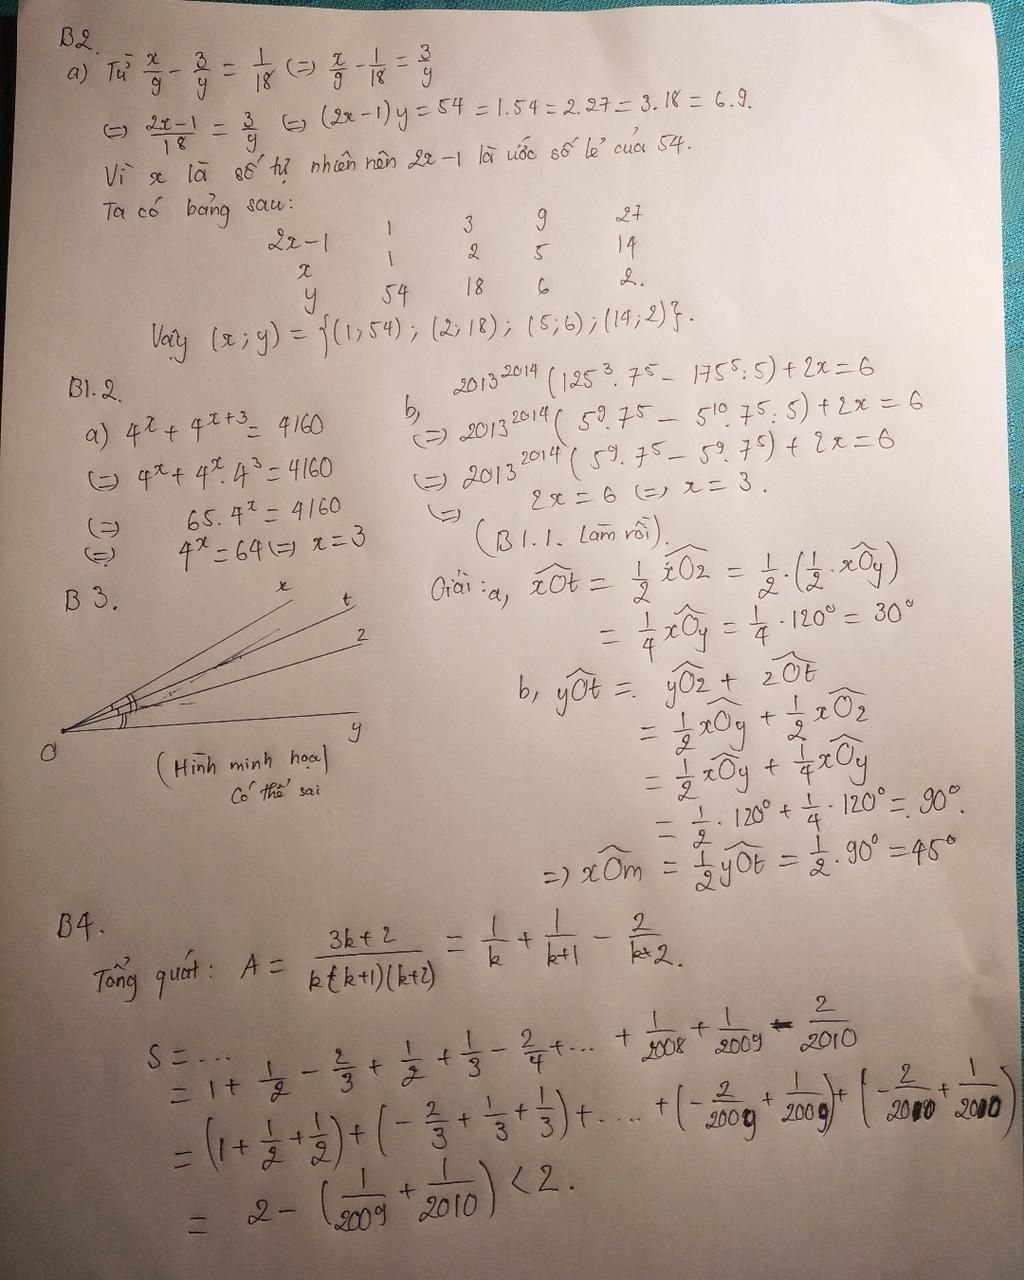 B2.
a) Từ x/9 - 3/y = 1/18 (=) x/9 - 1/18 = 3/y
(=) 2x-1/18 = 3/y (=) (2x-1)y = 54 = 1.54 = 2.27 = 3.18 = 6.9.
Vì x là số tự nhiên nên 2x-1 là ước số lẻ của 54.
Ta có bảng sau:
2x-1 1 3 9 27
x 1 2 5 14
y 54 18 6 2.
Vậy (x;y) = {(1;54); (2;18); (5;6); (14;2)}.
B1.2.
a) 4^x + 4^(x+3) = 4160
(=) 4^x + 4^x. 4^3 = 4160
(=) 65. 4^x = 4160
(=) 4^x = 64 (=) x = 3
b, 2013^2014 (125^3. 7^5 - 175^5: 5) + 2x = 6
(=) 2013^2014 (5^9. 7^5 - 5^10. 7^5: 5) + 2x = 6
(=) 2013^2014 (5^9. 7^5 - 5^9. 7^5) + 2x = 6
(=) 2x = 6 (=) x = 3.
(B1.1. Làm rồi).
B3.
x
t
z
O
y
(Hình minh họa)
Có thể sai
Giải: a, xOt = 1/2 xOz = 1/2 . (1/2 . xOy)
= 1/4 xOy = 1/4 . 120° = 30°
b, yOt = yOz + zOt
= 1/2 xOy + 1/2 xOz
= 1/2 xOy + 1/4 xOy
= 1/2 . 120° + 1/4 . 120° = 90°.
=) xOm = 1/2 yOt = 1/2 . 90° = 45°
B4.
Tổng quát: A = 3k+2/k(k+1)(k+2) = 1/k + 1/k+1 - 2/k+2.
S = ...
= 1 + 1/2 - 2/3 + 1/2 + 1/3 - 2/4 + ... + 1/2008 + 1/2009 - 2/2010
= (1 + 1/2 + 1/2) + (-2/3 + 1/3 + 1/3) + .... + (-2/2009 + 1/2009) + (-2/2010 + 1/2010)
= 2 - (1/2009 + 1/2010) < 2.